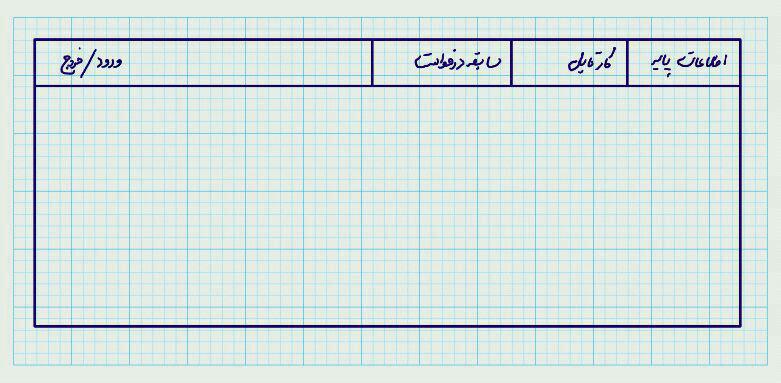 اطلاعات پایه کارتابل سابقه درخواست ورود/خروج